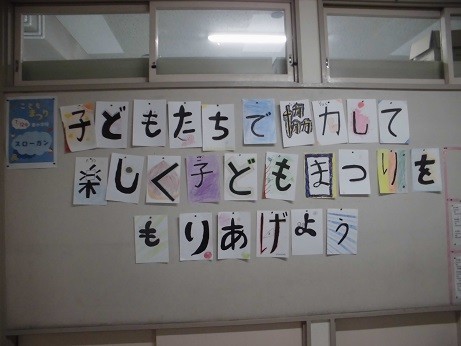 こども
まつり
スローガン
子どもたちで協力して
楽しく子どもまつりを
もりあげよう